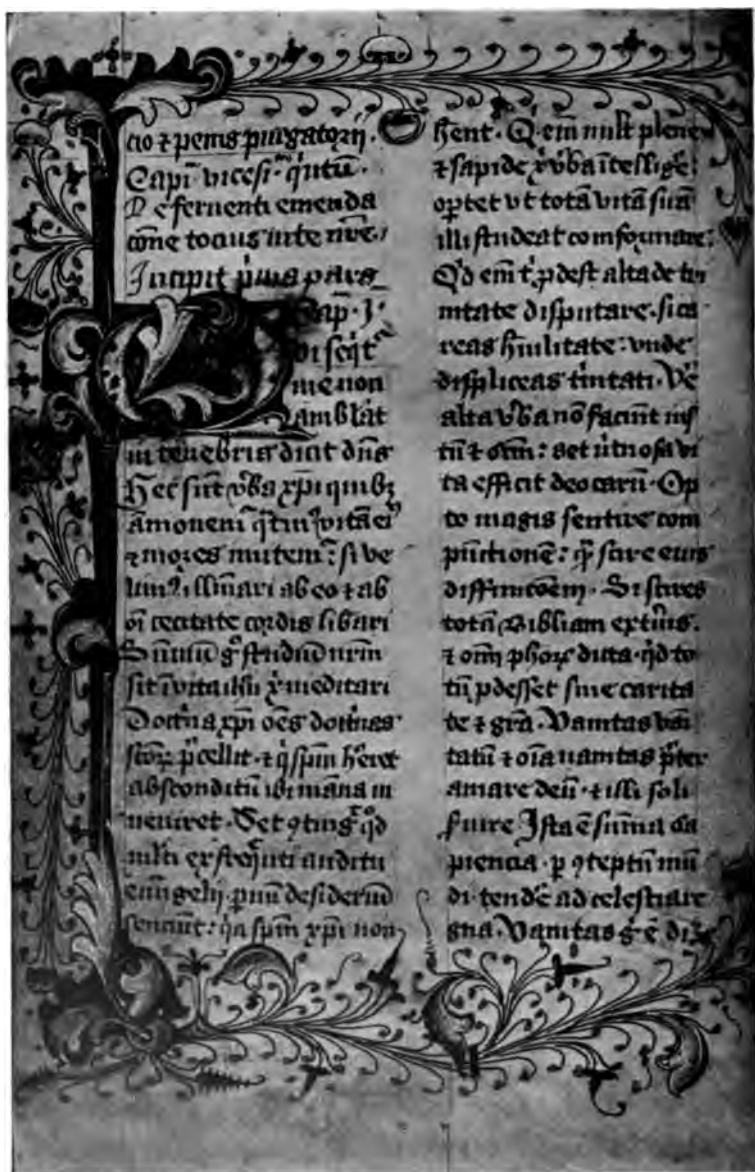 cio ⁊ penis purgatorij.
Capm̄ vicesi.ᵐ qͥntū.
De feruenti emenda
cōne tocius uite nr̄e.
Incipit pͥma pars
Cap. I.
Qui seqͥt᷑
me non
ambĺat
in tenebris dicit dn̄s
Hec sūt ỽba xp̄i quibꝫ
amonem᷑ qͣtinꝰ vitā eiꝰ
⁊ mores imitem᷑: si ve
limꝰ illūinari ab eo ⁊ ab
oī cecitate cordis libari
Sūmū gͦ studiū nr̄m
sit ī vita ih̄u xͥ meditari
Doctͥna xp̄i oēs doctͥnas
scōꝝ p̄cellit. ⁊ qͥ spm̄ h̄eret
absconditū ibi māna in
ueniret. Set ꝯtingͥ qͥd
mĺti ex freqn̄ti auditu
euāngelij. ꝑuū desideriū
senciūt: qͥa spm̄ xp̄i non
h̄ent. Qͥ em̄ vult plene
⁊ sapide xͥ ỽba ītelligē᷑
oꝑtet vt totā vitā suā
illi studeat comformare:
Qͥd em̄ tͥ ꝓdest alta de tri
nitate disputare. si ca
reas hūilitate: vnde
displiceas tͥnitati. Vē
alta ỽba nō faciūt ius
tū ⁊ scm̄: set ỽtuosa vi
ta efficit deo carū. Op
to magis sentire com
pūctionē: qͣ scire eius
diffinicōem. Si scires
totā Bibliam extͥus.
⁊ om̄ ph̄oꝝ dicta. qͥd to
tū ꝓdesset sine carita
te ⁊ grā. Vanitas vāi
tatū ⁊ oīa vanitas p̄ter
amare deū. ⁊ illi soli
ẜuire Ista ē sūma sa
piencia. ꝑ ꝯteptū mū
di. tendē ad celestia re
gna. Vanitas gͦ ē di